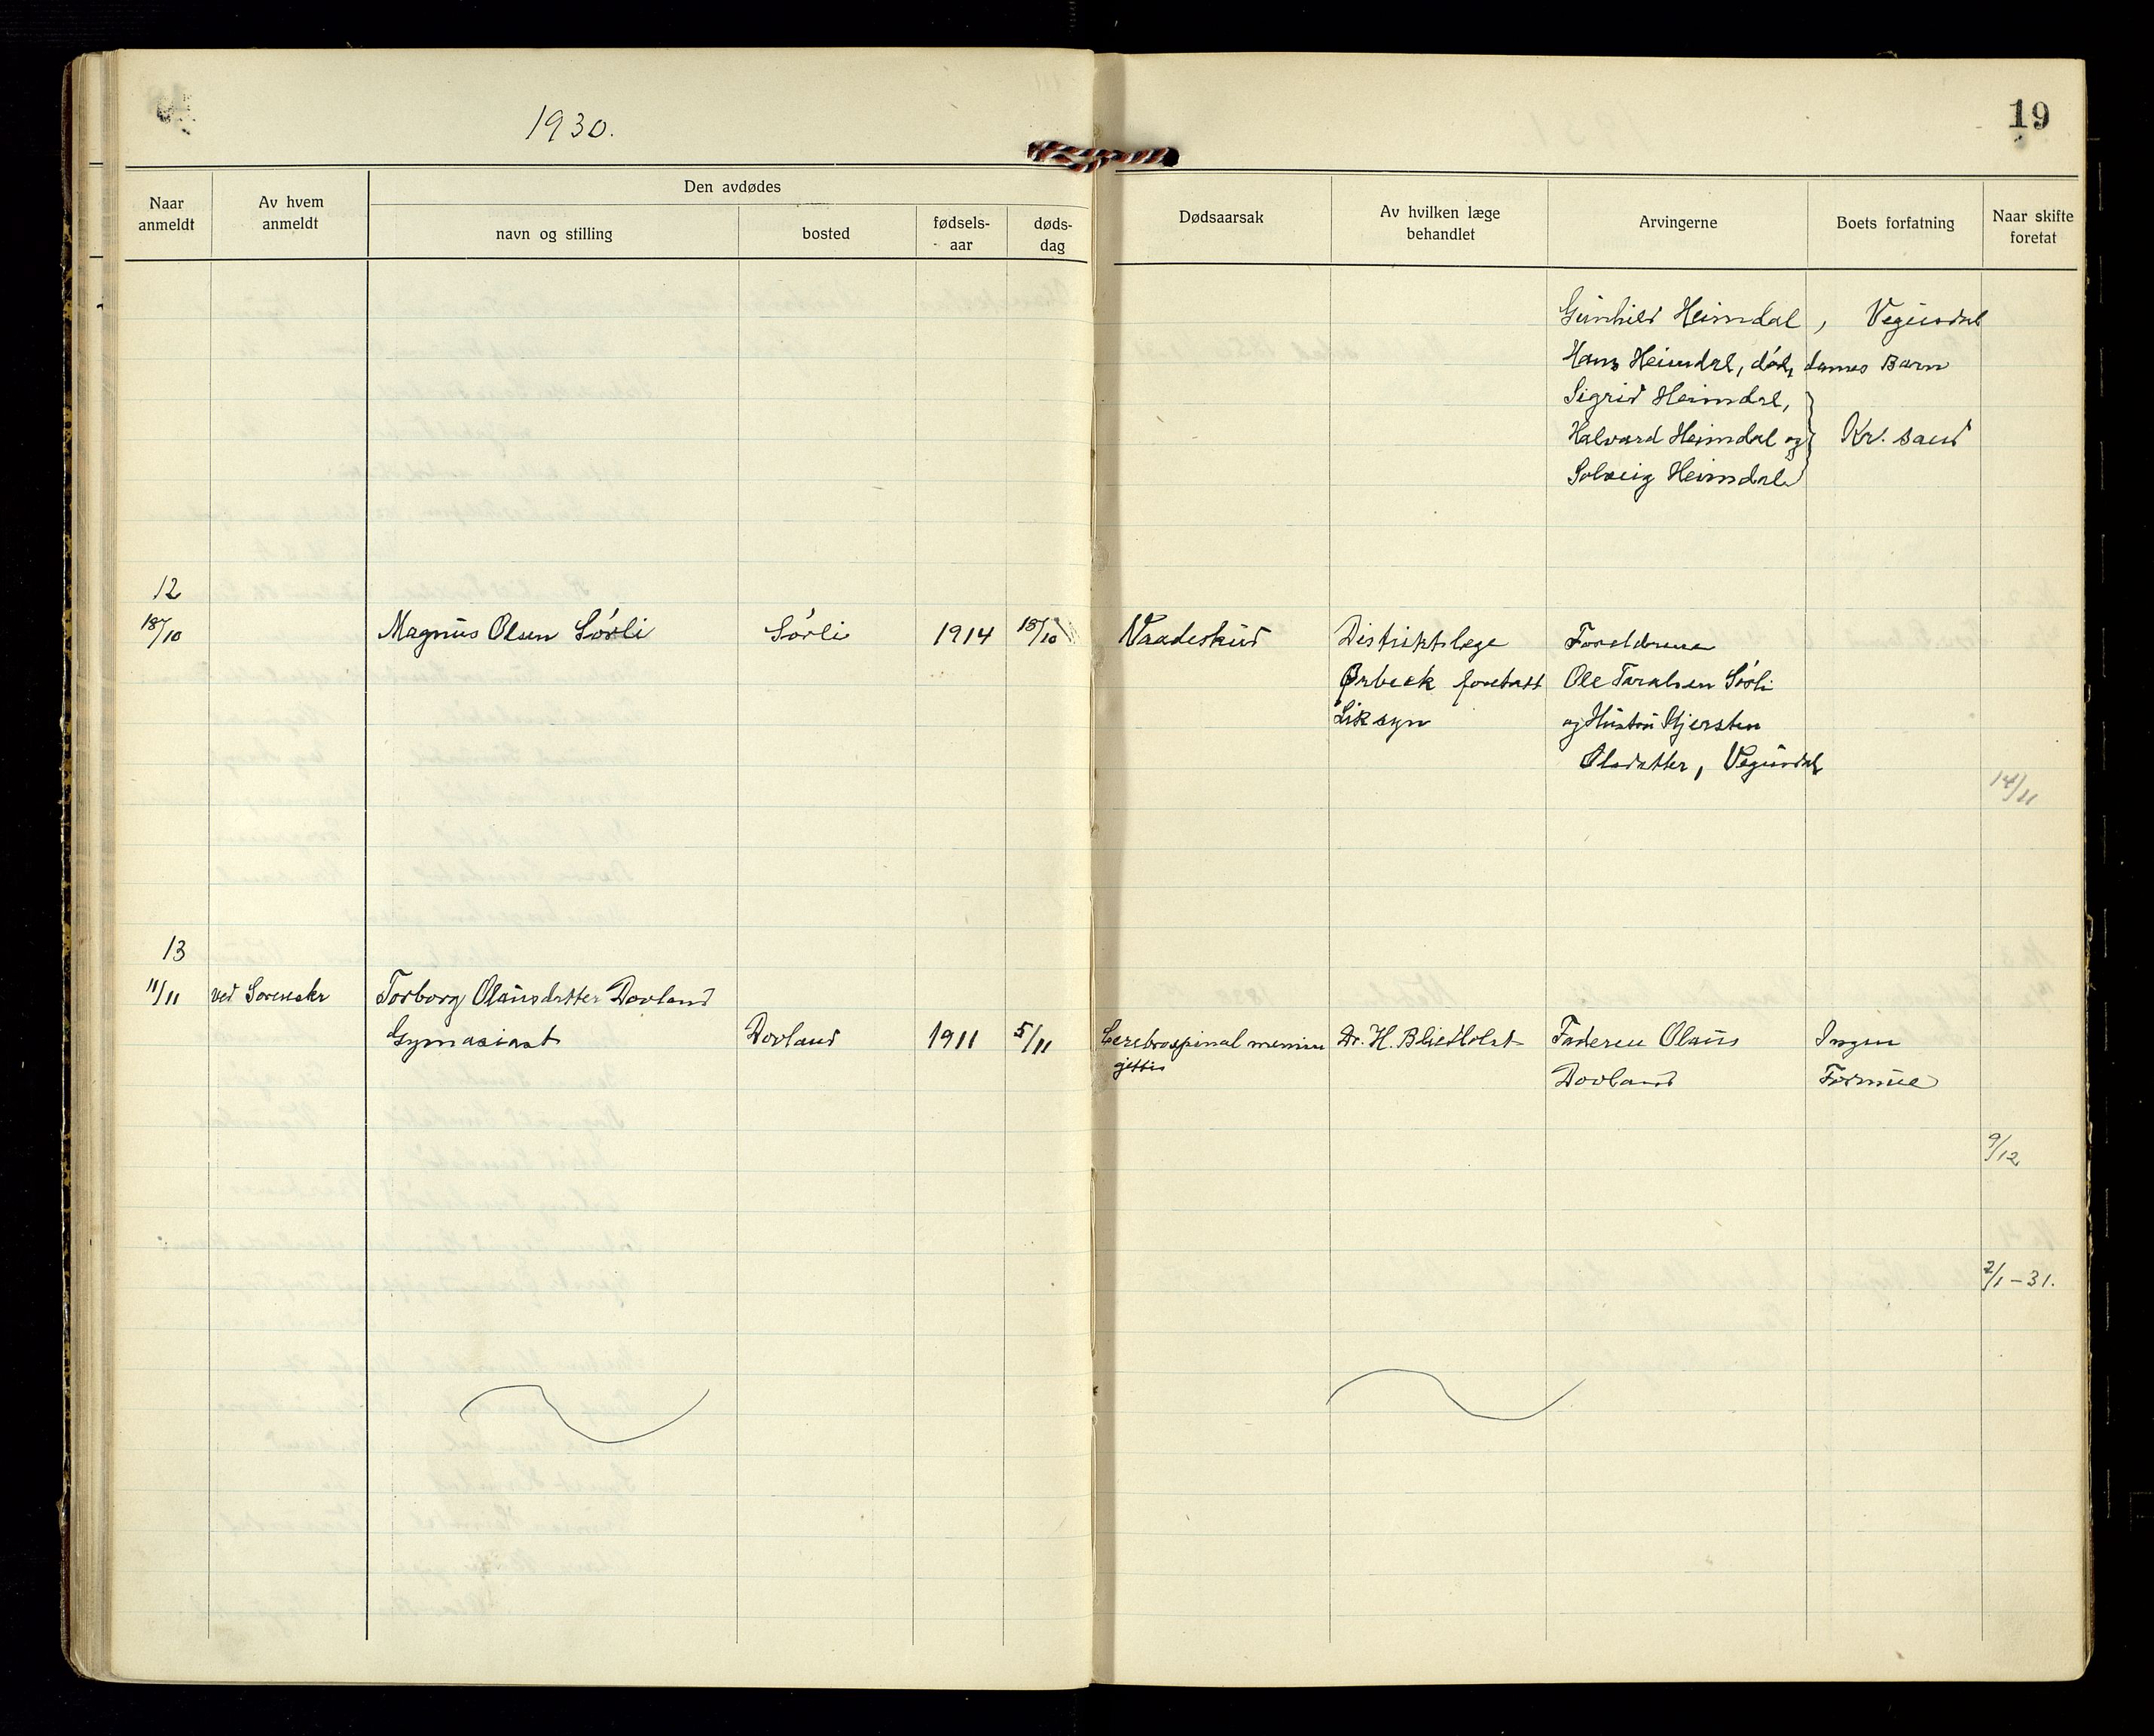 1930.
19
Naar anmeldt
Av hvem anmeldt
Den avdødes
navn og stilling
bosted
fødsels-aar
døds-dag
Dødsaarsak
Av hvilken læge behandlet
Arvingerne
Boets forfatning
Naar skifte foretat
Gunhild Heimdal, Vegusdal
Hans Heimdal, død, dennes Barn
Sigrid Heimdal,
Halvard Heimdal og } Kr.sand
Solveig Heimdal
12
18/10 Magnus Olsen Sørli Sørli 1914 18/10 Vaadeskud Distriktslæge Foreldrene
Ørbeck foretatt Ole Taralsen Sørli
Liksyn og Hustru Kjersten
Olsdatter, Vegusdal
14/11
13
11/11 ved Sorenskr Torborg Olausdatter Dovland
Gymnasiast Dovland 1911 5/11 Cerebrospinal menin Dr. H. Bliedholst Faderen Olaus Ingen
gitis Dovland Formue
9/12
2/1-31.